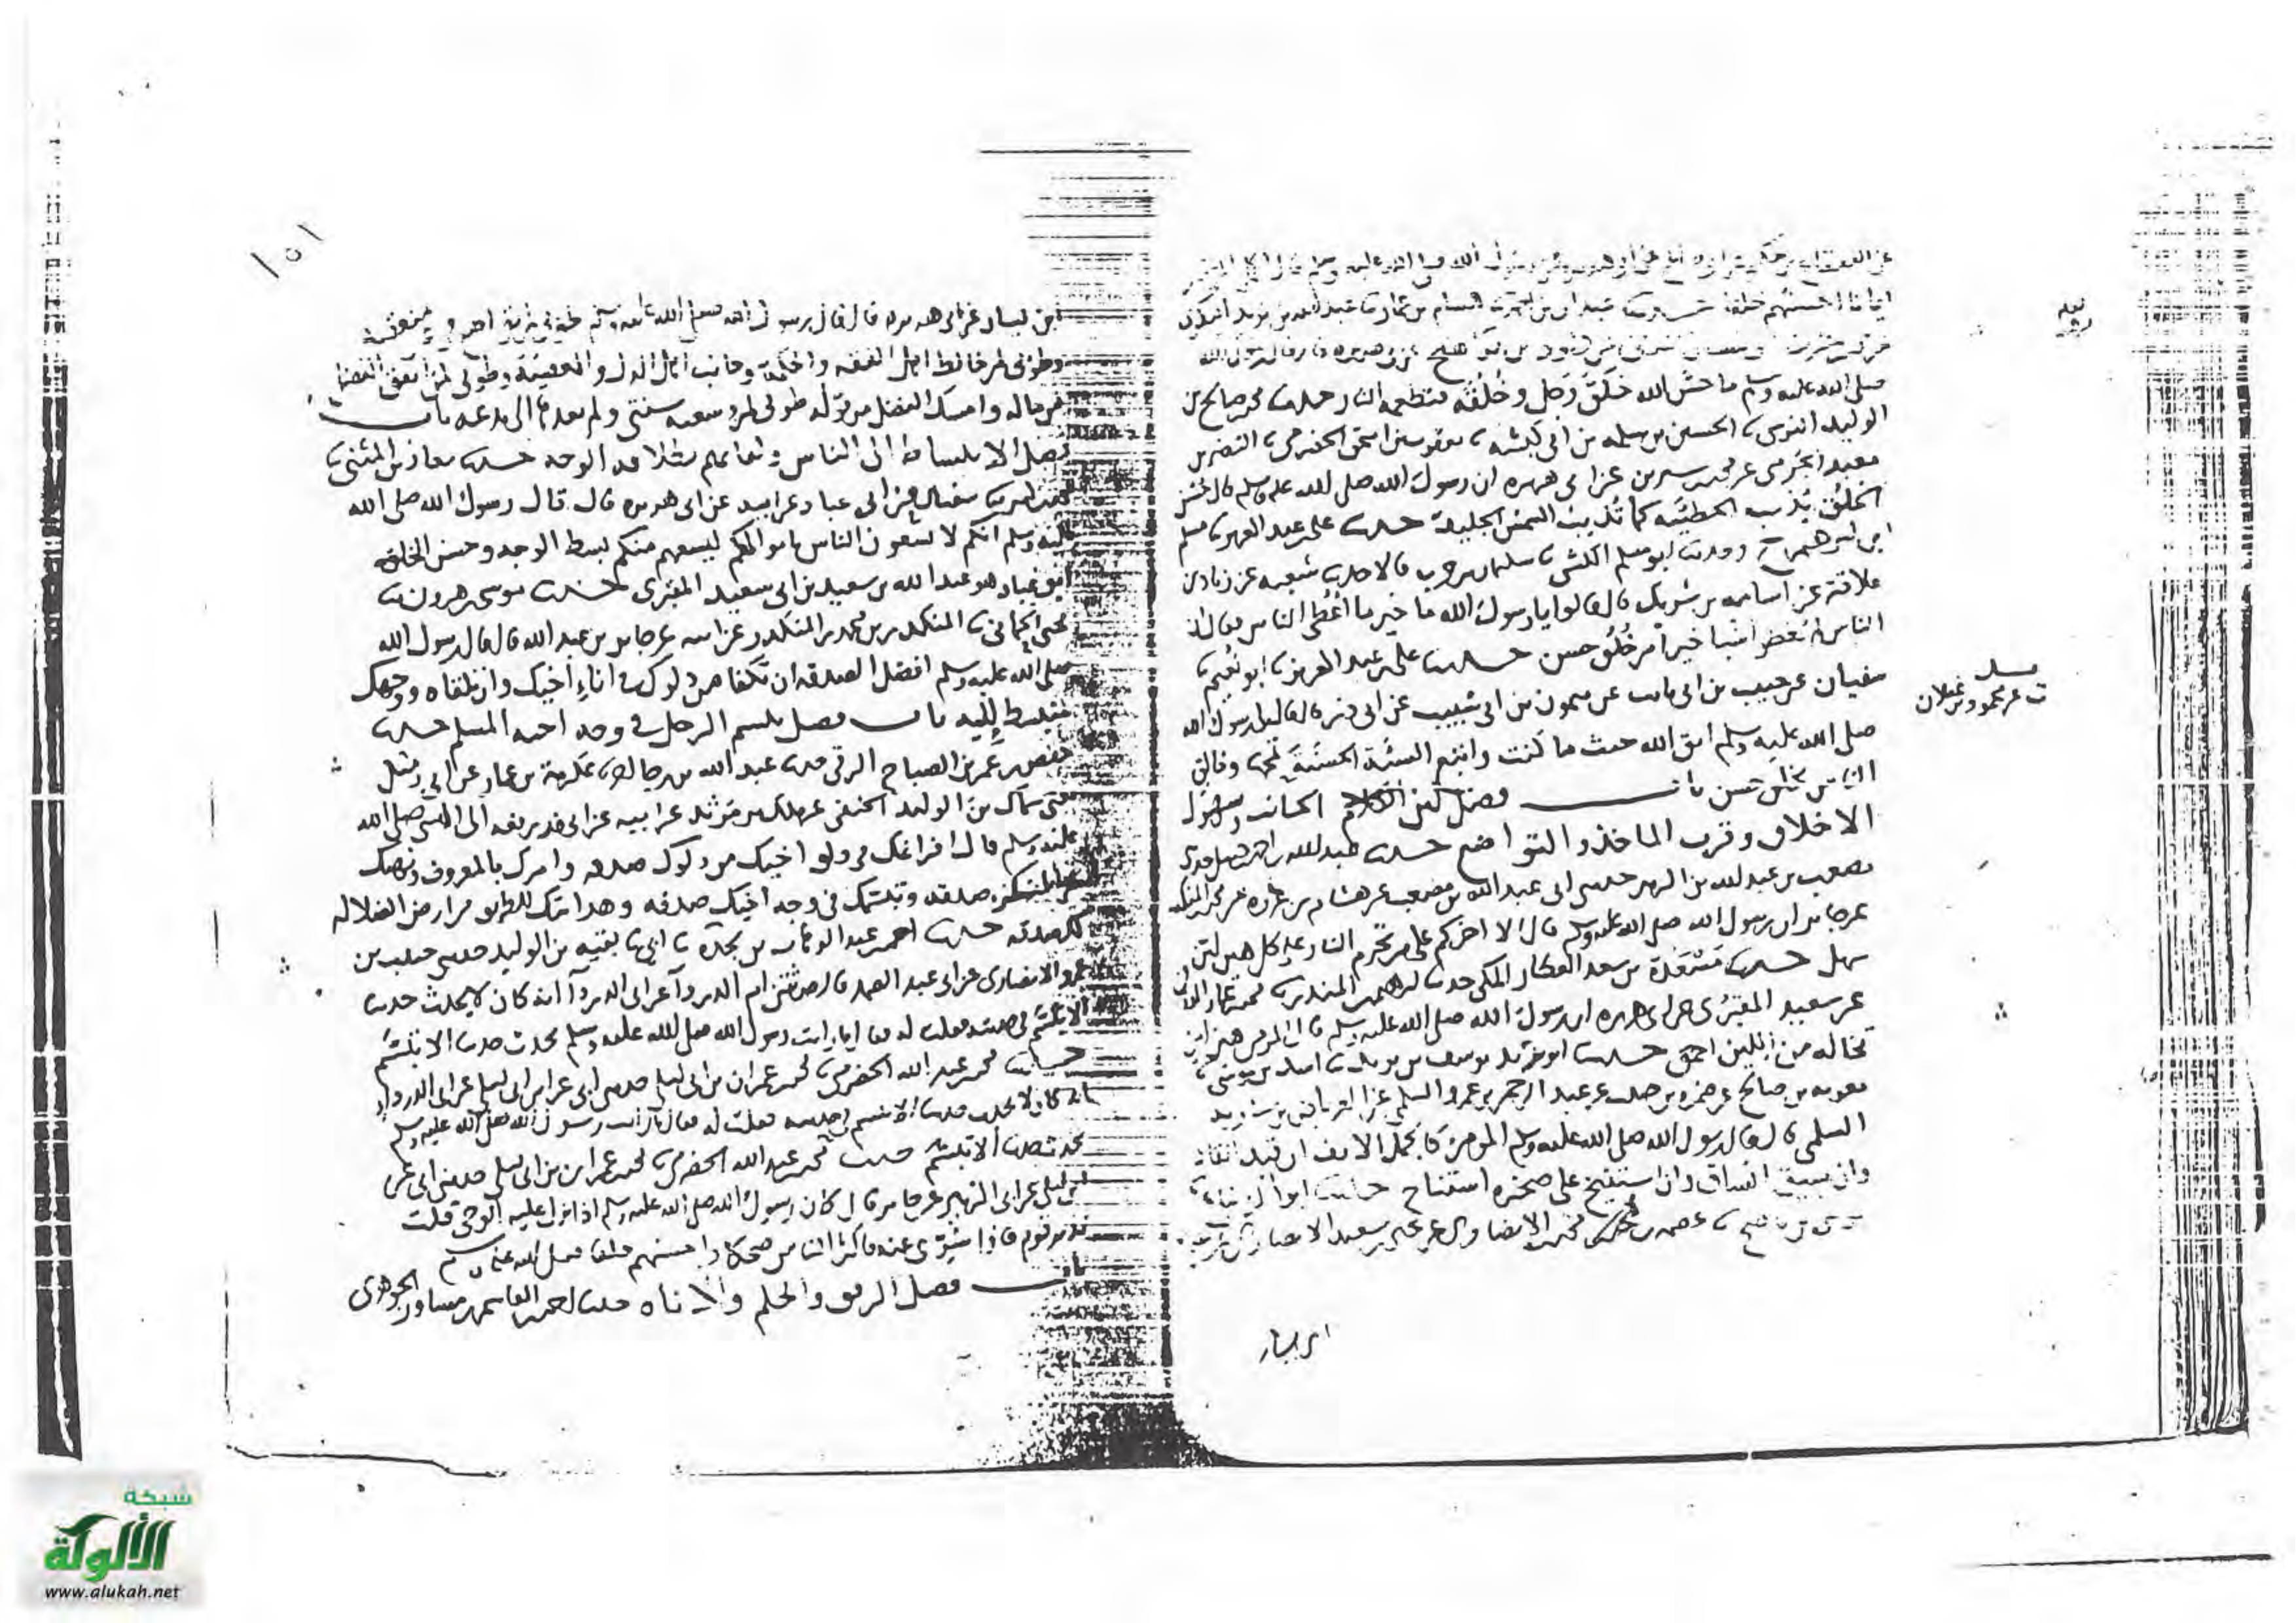 عن القعقاع بن حكيم عن ابي صالح عن ابي هريره عن رسول الله صلى الله عليه وسلم قال اكمل المومنين
ايمانا احسنهم خلقا حدثنا عبدان بن احمد هشام بن عمار عبد الله بن يزيد البكري
عن ابي هريره قال قال رسول الله
صلى الله عليه وسلم ما حسّن الله خَلْقَ رَجل وخُلُقَه فتطعمه النار حدثنا محمد بن صالح بن
الوليد النرسي ثنا الحسين بن سلمه بن ابي كبشه ثنا يعقوب بن اسحق الحضرمي ثنا النضر بن
معبد الجرمي عن محمد بن سيرين عن ابي هريره ان رسول الله صلى الله عليه وسلم قال حُسن
الخُلُق يُذيب الخطيئه كما تُذيب الشمس الجليد حدثنا علي بن عبد العزيز ثنا مسلم
ابن ابرهيم ح وحدثنا ابو مسلم الكشي ثنا سليمان بن حرب قالا حدثنا شعبه عن زياد بن
علاقة عن اسامه بن شريك قال قالوا يا رسول الله ما خير ما أُعْطي الناس فقال ان
الناس لم يُعْطوا شيا خيرا من خُلُق حسن حدثنا علي بن عبد العزيز ثنا ابو نُعَيم ثنا
سفيان عن حبيب بن ابي ثابت عن ميمون بن ابي شبيب عن ابي ذر قال قال لي رسول الله
صلى الله عليه وسلم اتق الله حيث ما كنت واتبع السيّئة الحسنَةَ تمحها وخالق
الناس بخلق حسن باب فضل لين الجانب وسهوله
الاخلاق وقرب الماخذ والتواضع حدثنا عبد الله بن احمد بن حنبل حدثني
مصعب بن عبد الله بن الزبير حدثني ابي عبد الله بن مصعب عن هشام بن عروه عن محمد بن المنكدر
عن جابر ان رسول الله صلى الله عليه وسلم قال الا اخبركم على من تحرم النار عليه كل هين لين
سهل حدثنا مَسْعَدَة بن سعد العطار المكي حدثنا ابرهيم بن المنذر ثنا محمد بن عمار
عن سعيد المقبُري عن ابي هريره ان رسول الله صلى الله عليه وسلم قال المومن هين لين
تخاله من اللين احمق حدثنا ابو يزيد يوسف بن يزيد ثنا اسد بن موسى ثنا
معويه بن صالح عن ضمره بن حبيب عن عبد الرحمن بن عمرو السلمي عن العرباض بن ساريه
السلمي قال قال رسول الله صلى الله عليه وسلم المومن كالجمل الانف ان قيد انقاد
وان سيق انساق وان استنيخ على صخره استناخ حدثنا
محمد الانصاري عن محمد بن سعيد الانصاري
ابن يسار
نعله
مسلم
ت عن محمود بن غيلان
١٥١
ابن يسار عن ابي هريره قال قال رسول الله صلى الله عليه وسلم طوبى لمن
وطوبى لمن خالط اهل الفقه والحكمة وجانب اهل الذل والمعصية وطوبى لمن انفق الفضل
من ماله وامسك الفضل من قوله طوبى لمن وسعته سنتي ولم يعدها الى بدعه باب
فضل الانبساط الى الناس ولقايهم بطلاقه الوجه حدثنا معاذ بن المثنى ثنا
محمد بن كثير ثنا سفيان عن ابي عباد عن ابيه عن ابي هريره قال قال رسول الله صلى الله
عليه وسلم انكم لا تسعون الناس باموالكم ليسعهم منكم بسط الوجه وحسن الخلق
ابو عباد هو عبد الله بن سعيد بن ابي سعيد المقبري حدثنا موسى بن هرون ثنا
يحيى الحماني ثنا المنكدر بن محمد بن المنكدر عن ابيه عن جابر بن عبد الله قال قال رسول الله
صلى الله عليه وسلم افضل الصدقه ان تكفا من دلوك في اناء أخيك وان تلقاه ووجهك
منبسط إليه باب فضل تبسم الرجل في وجه اخيه المسلم حدثنا
حفص بن عمر بن الصباح الرقي حدثنا عبد الله بن رجا ثنا عكرمة بن عمار عن ابي زميل
يعني سماك بن الوليد الحنفي عن مالك بن مرثد عن ابيه عن ابي ذر يرفعه الى النبي صلى الله
عليه وسلم قال افراغك في دلو اخيك من دلوك صدقه وامرك بالمعروف ونهيك
عن المنكر صدقه وتبسّمك في وجه اخيك صدقه وهدايتك للطريق من ارض الضلاله
لك صدقه حدثنا احمد بن عبد الوهاب بن نجدة ثنا ابي ثنا بقيه بن الوليد حدثني حبيب بن
عمرو الانصاري عن ابي عبد الصمد قال حدثتني ام الدردآ عن ابي الدردآ انه كان لا يحدث حديثا
الا تبسّم في حديثه فقلت له فقال ما رايت رسول الله صلى الله عليه وسلم يحدث حديثا الا تبسّم
حدثنا محمد بن عبد الله الحضرمي ثنا محمد بن عمران بن ابي ليلى حدثني ابي عن ابن ابي ليلى عن ابي الدرداء
انه كان لا يحدث حديثا الا تبسم في حديثه فقلت له فقال ما رايت رسول الله صلى الله عليه وسلم
يحدث حديثا الا تبسّم حدثنا محمد بن عبد الله الحضرمي ثنا محمد بن عمران بن ابي ليلى حدثني ابي عن
ابن ابي ليلى عن ابي الزبير عن جابر قال كان رسول الله صلى الله عليه وسلم اذا نزل عليه الوحي قلت
نذير قوم فاذا سُرّي عنه فاكثر الناس ضحكا واحسنهم خلقا صلى الله عليه وسلم
باب فضل الرفق والحلم والاناه حدثنا احمد بن القاسم بن مساور الجوهري
شبكة
الألوكة
www.alukah.net